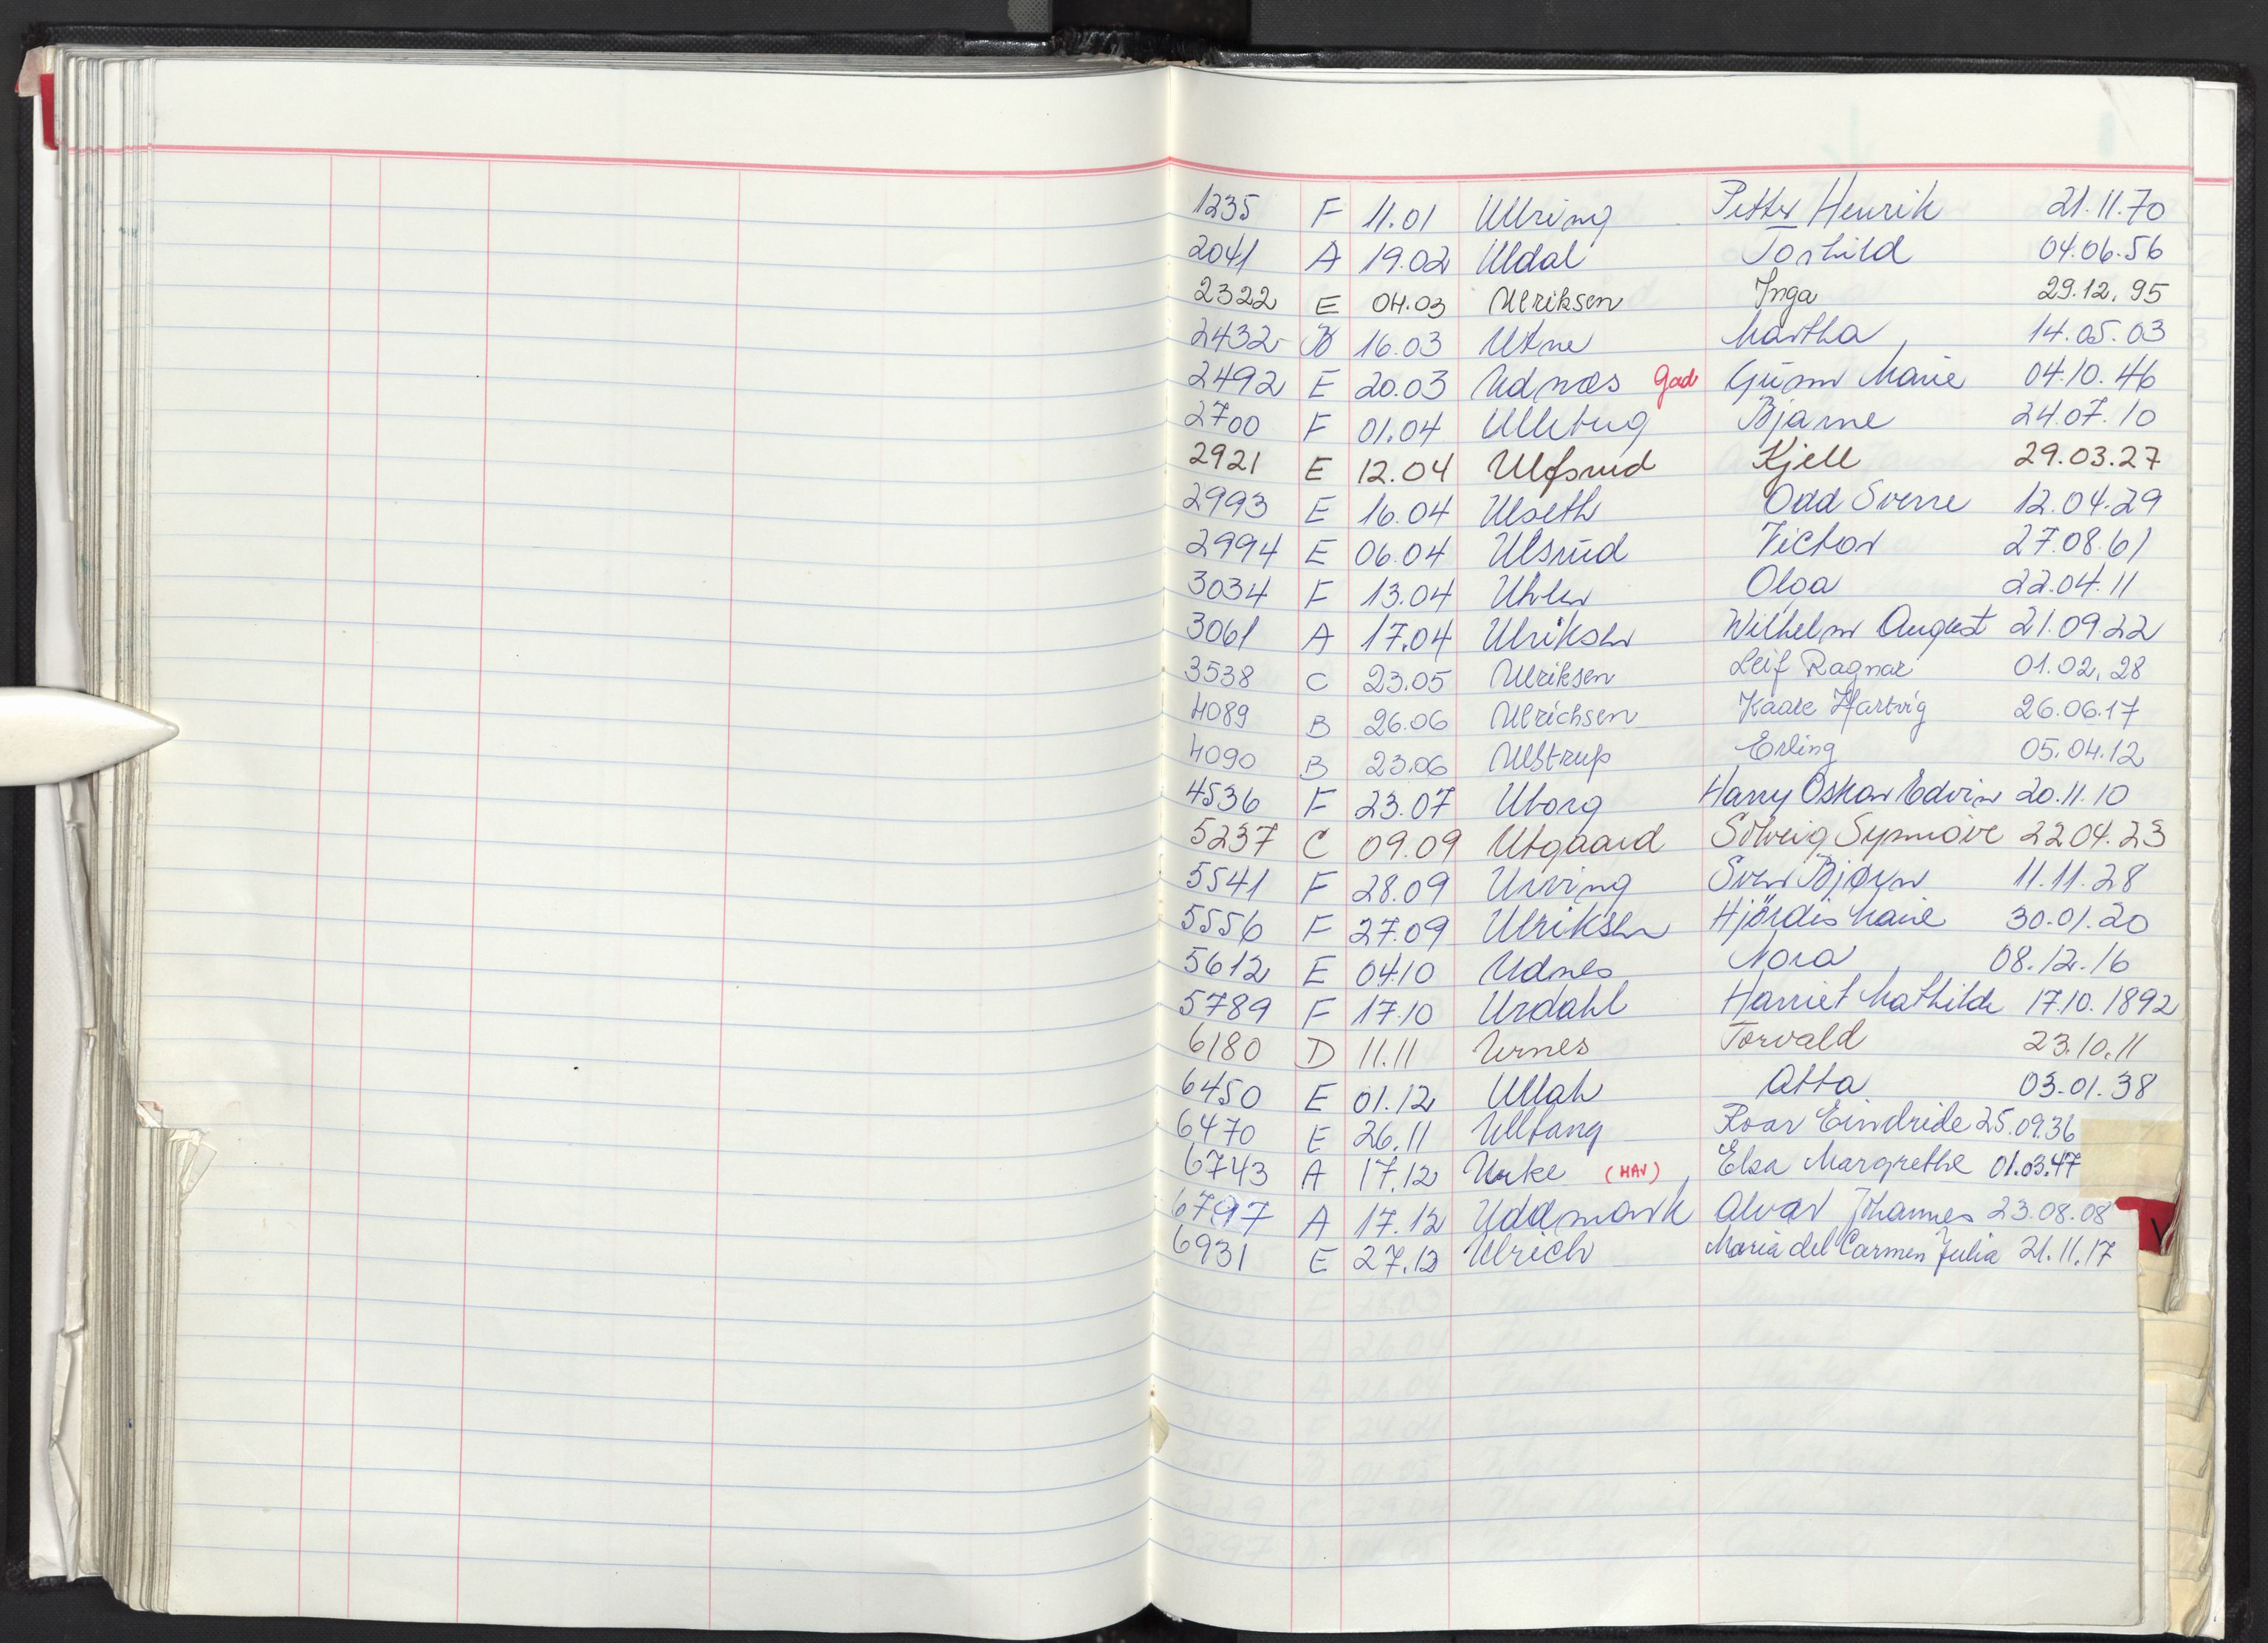 1235 F 11.01 Ullring Petter Henrik 21.11.70
2041 A 19.02 Uldal Torhild 04.06.56
2322 E 04.03 Ulriksen Inga 29.12.95
2432 B 16.03 Utne Martha 14.05.03
2492 E 20.03 Udnæs Gad Gunn Marie 04.10.46
2700 F 01.04 Ulleberg Bjarne 24.07.10
2921 E 12.04 Ulfsrud Kjell 29.03.27
2993 E 16.04 Ulseth Odd Sverre 12.04.29
2994 E 06.04 Ulsrud Victor 27.08.61
3034 F 13.04 Uhlen Olga 22.04.11
3061 A 17.04 Ulriksen Wilhelm August 21.09.22
3538 C 23.05 Ulriksen Leif Ragnar 01.02.28
4089 B 26.06 Ulrichsen Kaare Hartvig 26.06.17
4090 B 23.06 Ulstrup Erling 05.04.12
4536 F 23.07 Uborg Harry Oskar Edvin 20.11.10
5237 C 09.09 Utgaard Solveig Synnøve 22.04.23
5541 F 28.09 Urving Sven Bjørn 11.11.28
5556 F 27.09 Ulriksen Hjördis Marie 30.01.20
5612 E 04.10 Udnes Nora 08.12.16
5789 F 17.10 Urdahl Harriet Mathilde 17.10.1892
6180 D 11.11 Urnes Torvald 23.10.11
6450 E 01.12 Ullah Atta 03.01.38
6470 E 26.11 Ulltang Roar Eindride 25.09.36
6743 A 17.12 Urke (HAV) Elsa Margrethe 01.03.47
6797 A 17.12 Uddmark Alvar Johannes 23.08.08
6931 E 27.12 Ulrich Maria del Carmen Julia 21.11.17